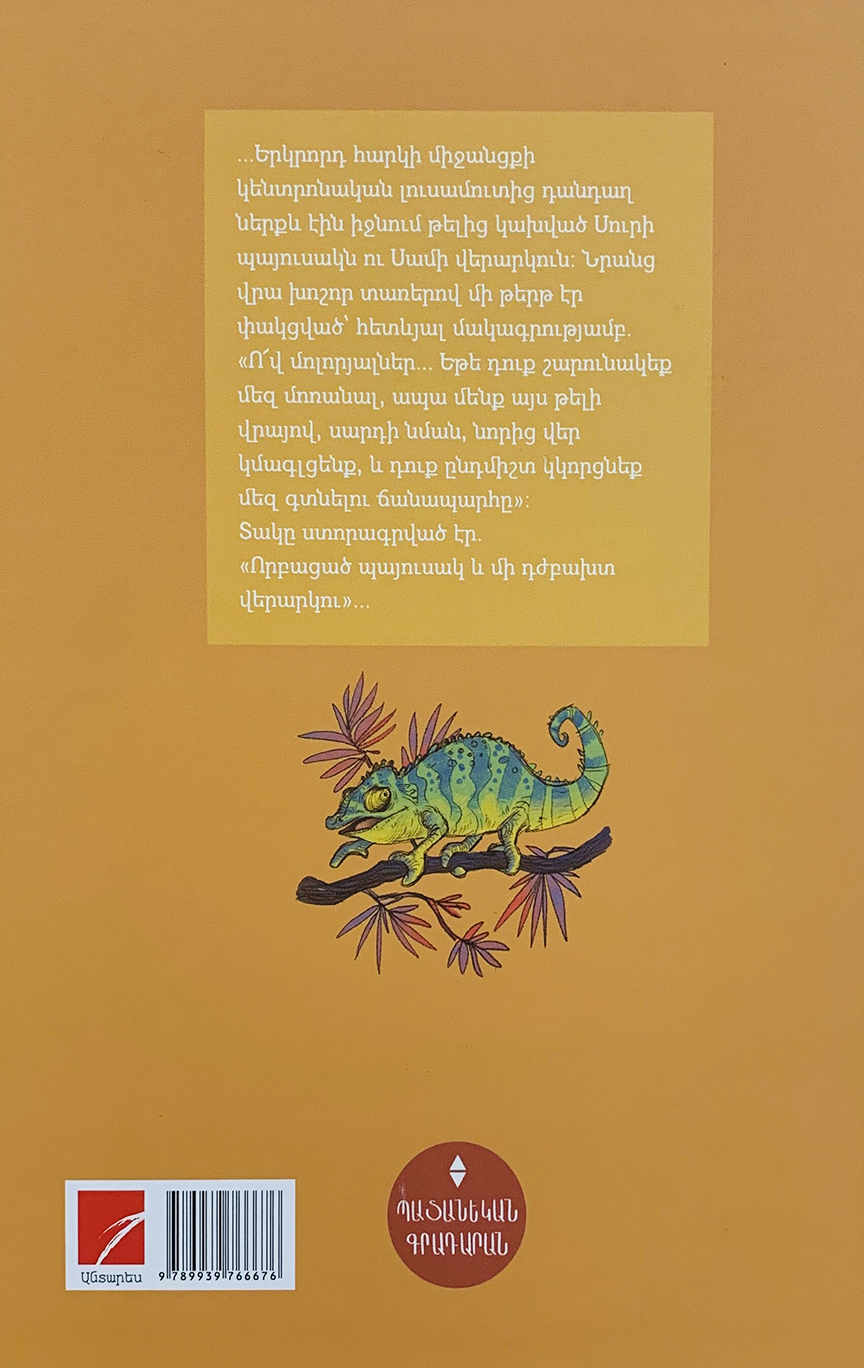 ...Երկրորդ հարկի միջանցքի
կենտրոնական լուսամուտից դանդաղ
ներքև էին իջնում թելից կախված Սուրի
պայուսակն ու Սամի վերարկուն։ Նրանց
վրա խոշոր տառերով մի թերթ էր
փակցված՝ հետևյալ մակագրությամբ.
«Ո՜վ մոլորյալներ... Եթե դուք շարունակեք
մեզ մոռանալ, ապա մենք այս թելի
վրայով, սարդի նման, նորից վեր
կմագլցենք, և դուք ընդմիշտ կկորցնեք
մեզ գտնելու ճանապարհը»։
Տակը ստորագրված էր.
«Որբացած պայուսակ և մի դժբախտ
վերարկու»...
ՊԱՏԱՆԵԿԱՆ
ԳՐԱԴԱՐԱՆ
Անտարես
9 789939 766676